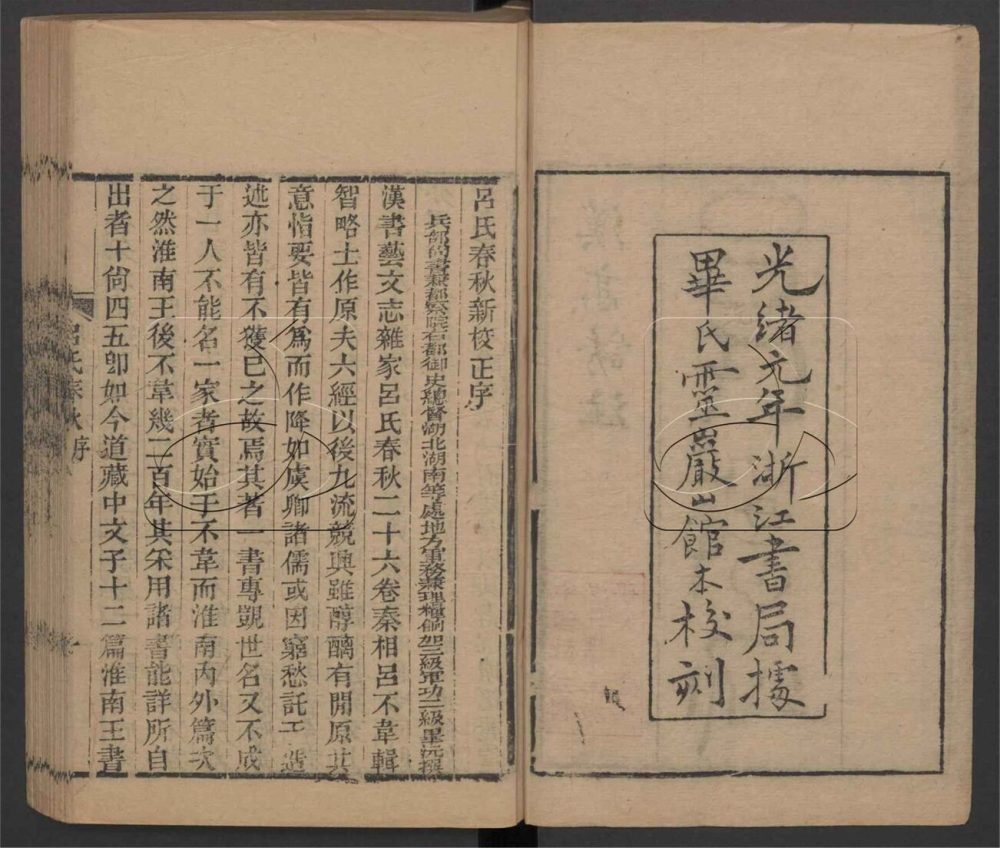 光緒元年浙江書局據
畢氏靈巖山館本校刻
呂氏春秋新校正序
兵部尙書兼都察院右都御史總督湖北湖南等處地方軍務兼理糧餉加三級軍功二級畢沅撰
漢書藝文志雜家呂氏春秋二十六卷秦相呂不韋輯
智略士作原夫六經以後九流競興雖醇醨有閒原其
意恉要皆有爲而作降如虞卿諸儒或因窮愁託于造
述亦皆有不獲已之故焉其著一書專覬世名又不成
于一人不能名一家者實始于不韋而淮南內外篇次
之然淮南王後不韋幾二百年其采用諸書能詳所自
出者十尙四五卽如今道藏中文子十二篇淮南王書
呂氏春秋序